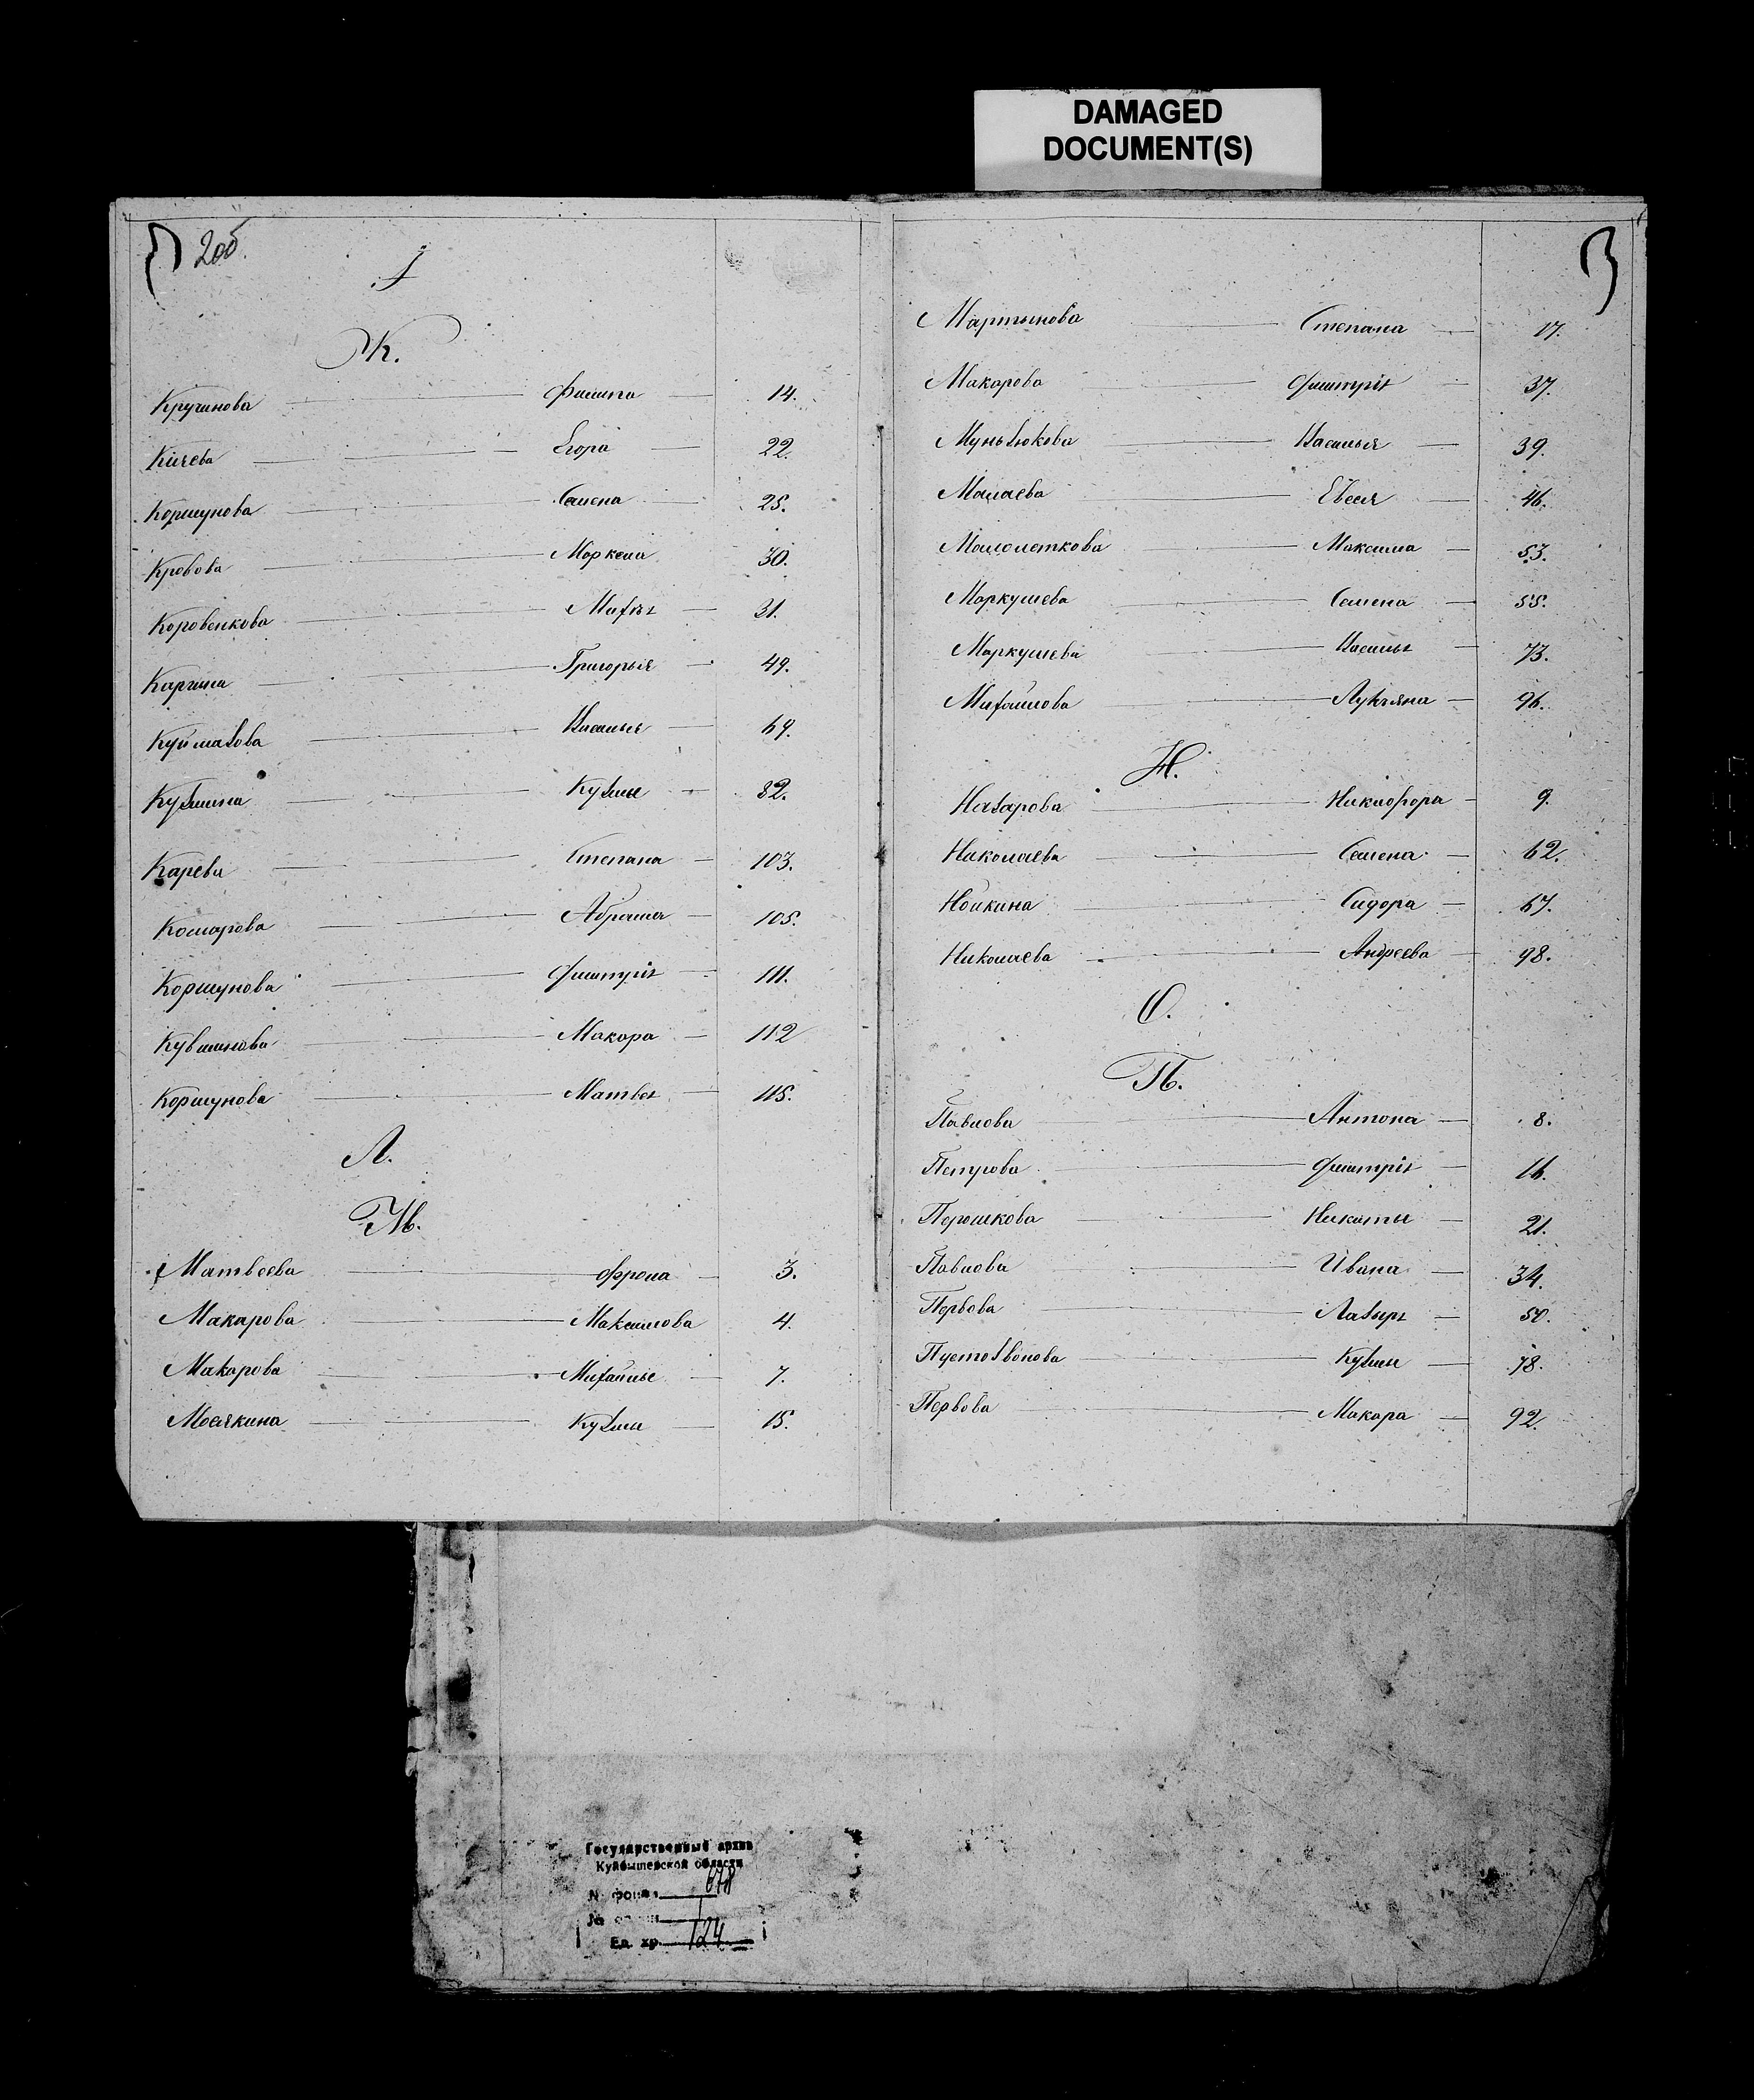 DAMAGED
DOCUMENT(S)
2об.
І
К.
Кручинова Филипа 14.
Кичева Егора 22.
Коршунова Семена 25.
Кровова Маркела 30.
Коровенкова 31.
Каргина Григорья 49.
Куймазова Василья 69.
Кузмина Кузмы 82.
Карева Степана 103.
Комарова Абрама 105.
Коршунова Дмитрія 111.
Кувшинова Макара 112
Коршунова Матвея 115.
Л.
М.
Матвеева Фрола 3.
Макарова Максимова 4.
Макарова Михайлы 7.
Мосякина Кузмы 15.
3
Мартынова Степана 17.
Макарова Дмитрія 37.
Муньзюкова Василья 39.
Малаева Евсея 46.
Малолеткова Максима 53.
Маркушева Семена 55.
Маркушева Василья 73.
Михайлова Лукьяна 96.
Н.
Назарова Никифора 9.
Николаева Семена 62.
Нойкина Сидора 67.
Николаева Андреева 98.
О.
П.
Павлова Антона 8.
Петрова Дмитрія 16.
Порошкова Никиты 21.
Павлова Ивана 34.
Первова Лазыря 50.
Пустозвонова Кузмы 78.
Первова Макара 92.
Государственный архив
Куйбышевской области
№ фонда 678
№ описи 1
Ед. хр. 124